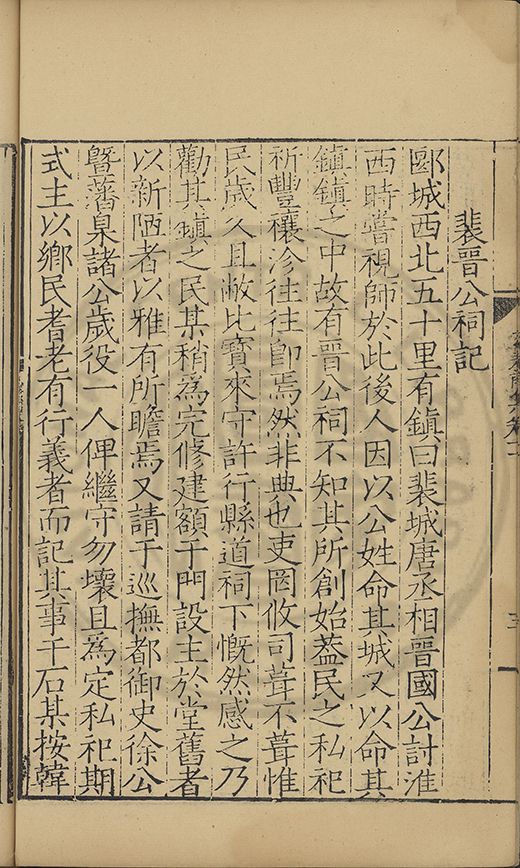 裴晉公祠記
郾城西北五十里有鎮曰裴城唐丞相晉國公討淮
西時嘗視師於此後人因以公姓命其城又以命其
鎮鎮之中故有晉公祠不知其所創始葢民之私祀
祈豐禳沴往往卽焉然非典也吏罔攸司葺不葺惟
民歲久且敝比寶來守許行縣道祠下慨然感之乃
勸其鎮之民某稍為完修建額于門設主於堂舊者
以新陋者以雅有所瞻焉又請于巡撫都御史徐公
暨藩臬諸公歲役一人俾繼守勿壞且爲定私祀期
式主以鄉民耆老有行義者而記其事于石某按韓